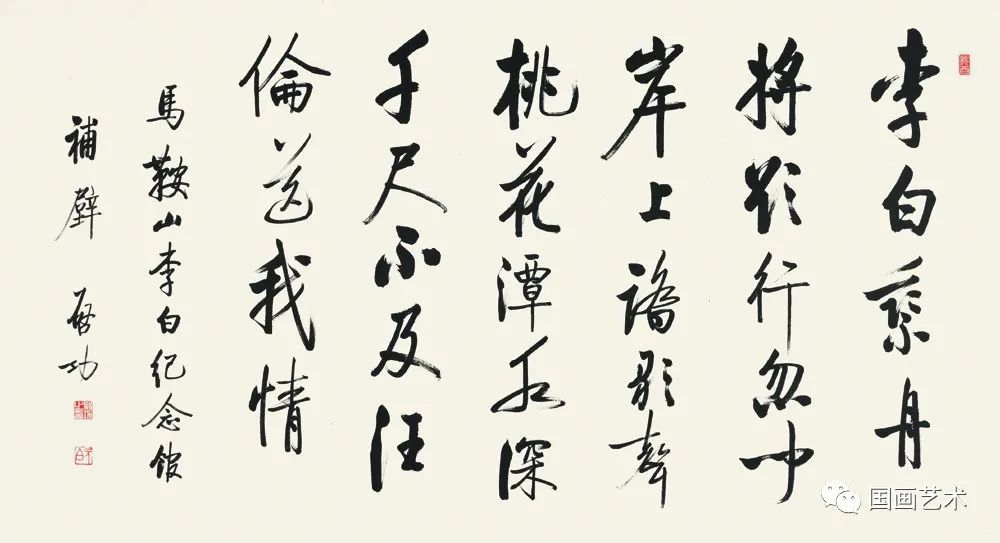 李白乘舟
將欲行忽聞
岸上踏歌聲
桃花潭水深
千尺不及汪
倫送我情
馬鞍山李白紀念館
補壁 啓功
国画艺术